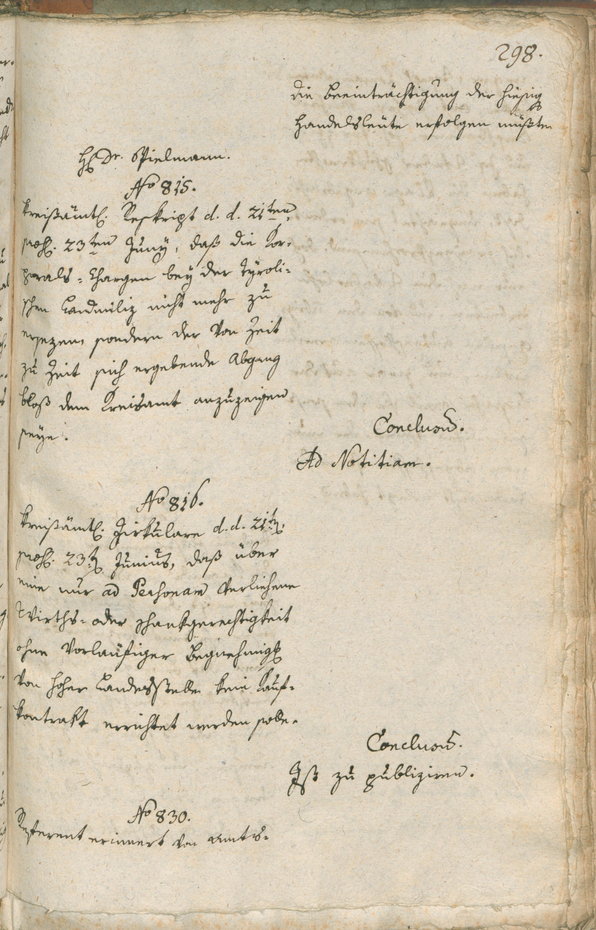 298.
die Beeinträchtigung der hiesig
Handelsleute erfolgen müßten
H. Dr. Spielmann.
No 815.
Kreisämtl. Reskript d. d. 21ten,
praes. 23ten Juny, daß die Kor-
porals-Chargen bey der Tyroli-
schen Landmiliz nicht mehr zu
ersezen, sondern der von Zeit
zu Zeit sich ergebende Abgang
bloß dem Kreisamt anzuzeigen
seye.
Conclusum.
Ad Notitiam.
No 816.
Kreisämtl. Zirkulare d. d. 21ten,
praes. 23ten Junius, daß über
eine nur ad Personam verliehene
Wirths- oder Schankgerechtigkeit
ohne vorläufiger Begnehmigg
von hoher Landesstelle kein Kauf-
kontrakt errichtet werden solle.
Conclusum.
Ist zu publiziren.
No 830.
Referent erinnert von Amts-